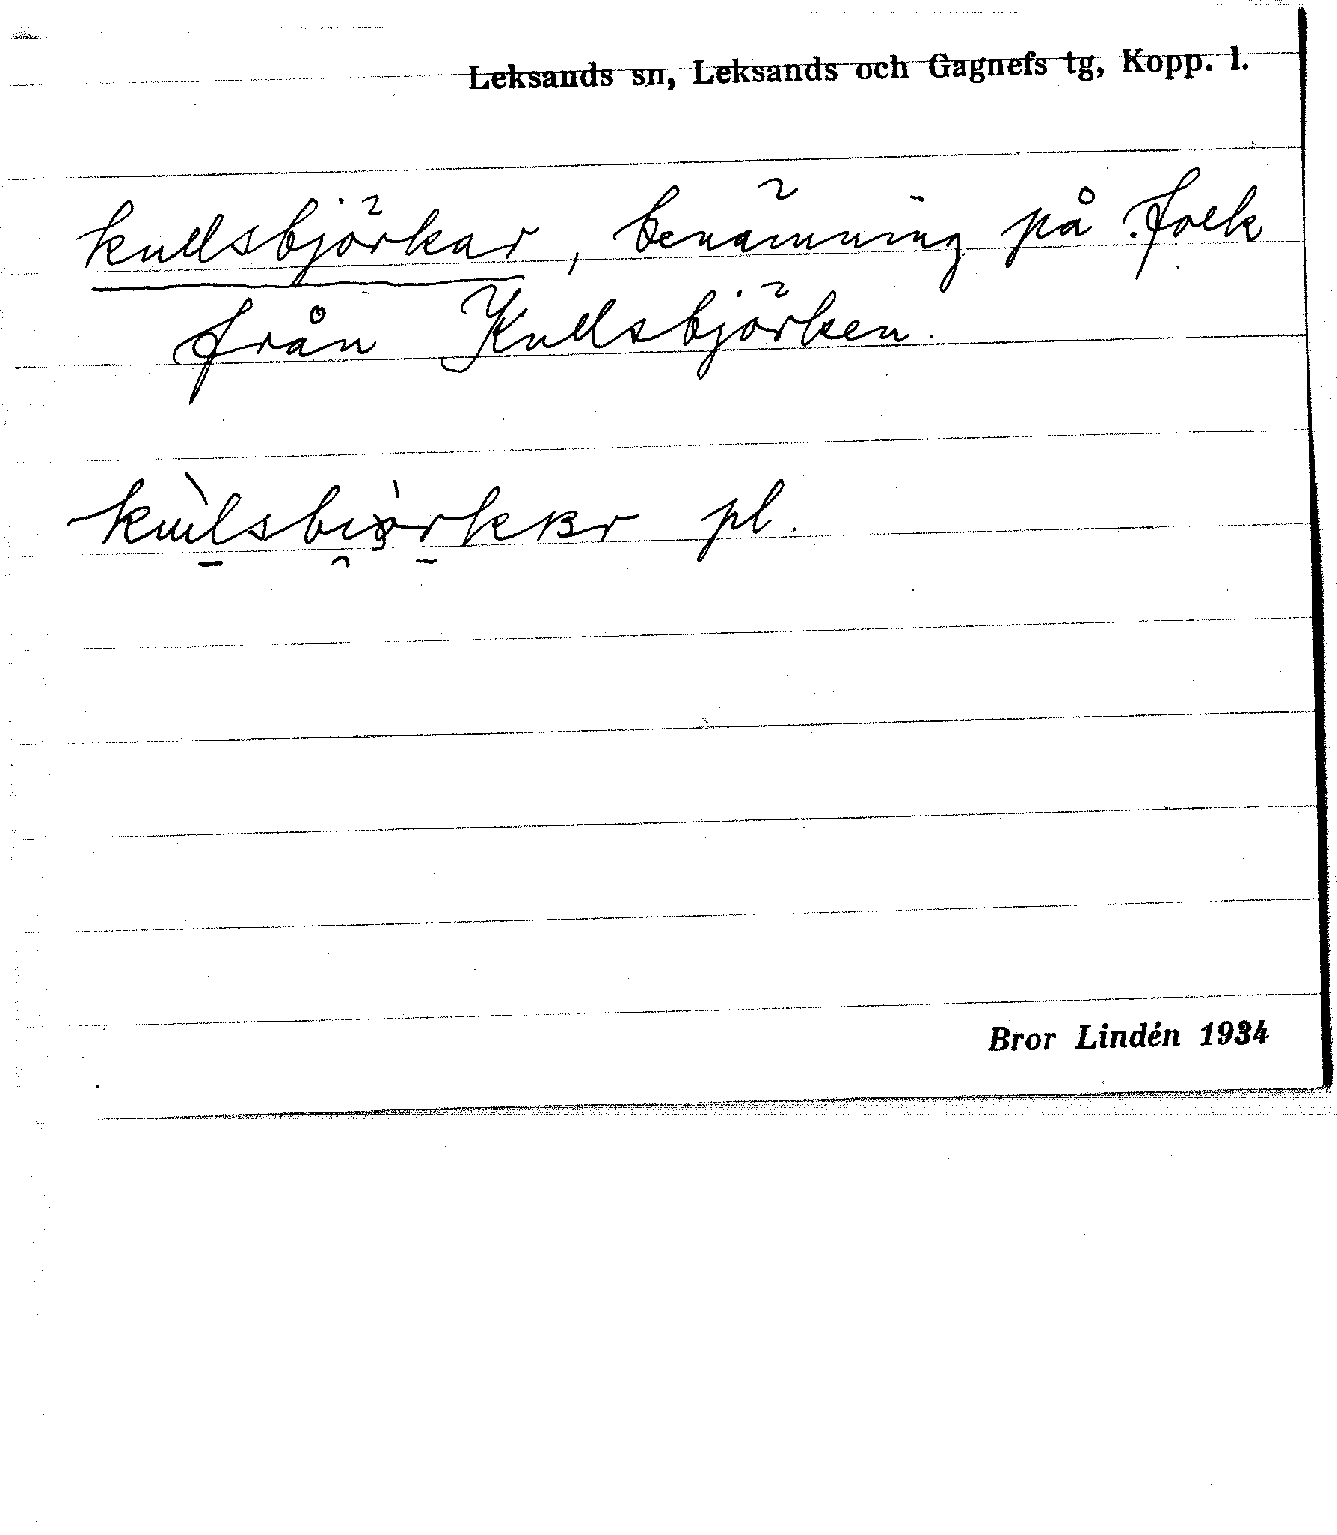 Leksands sn, Leksands och Gagnefs tg, Kopp. l.
kullsbjörkar, benämning på folk
från Kullsbjörken.
pl.
Bror Lindén 1934